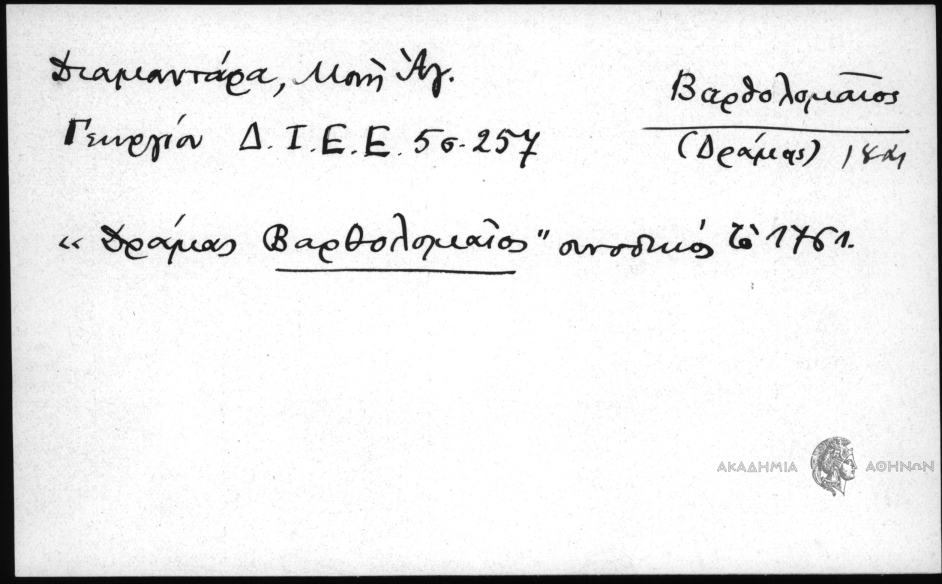 Διαμαντάρα, Μονὴ Ἁγ.
Γεωργίου Δ.Ι.Ε.Ε. 5 σ. 257
Βαρθολομαῖος
(Δράμας)
« Δράμας Βαρθολομαῖος" συνοδικός τῷ 1761.
ΑΚΑΔΗΜΙΑ ΑΘΗΝΩΝ